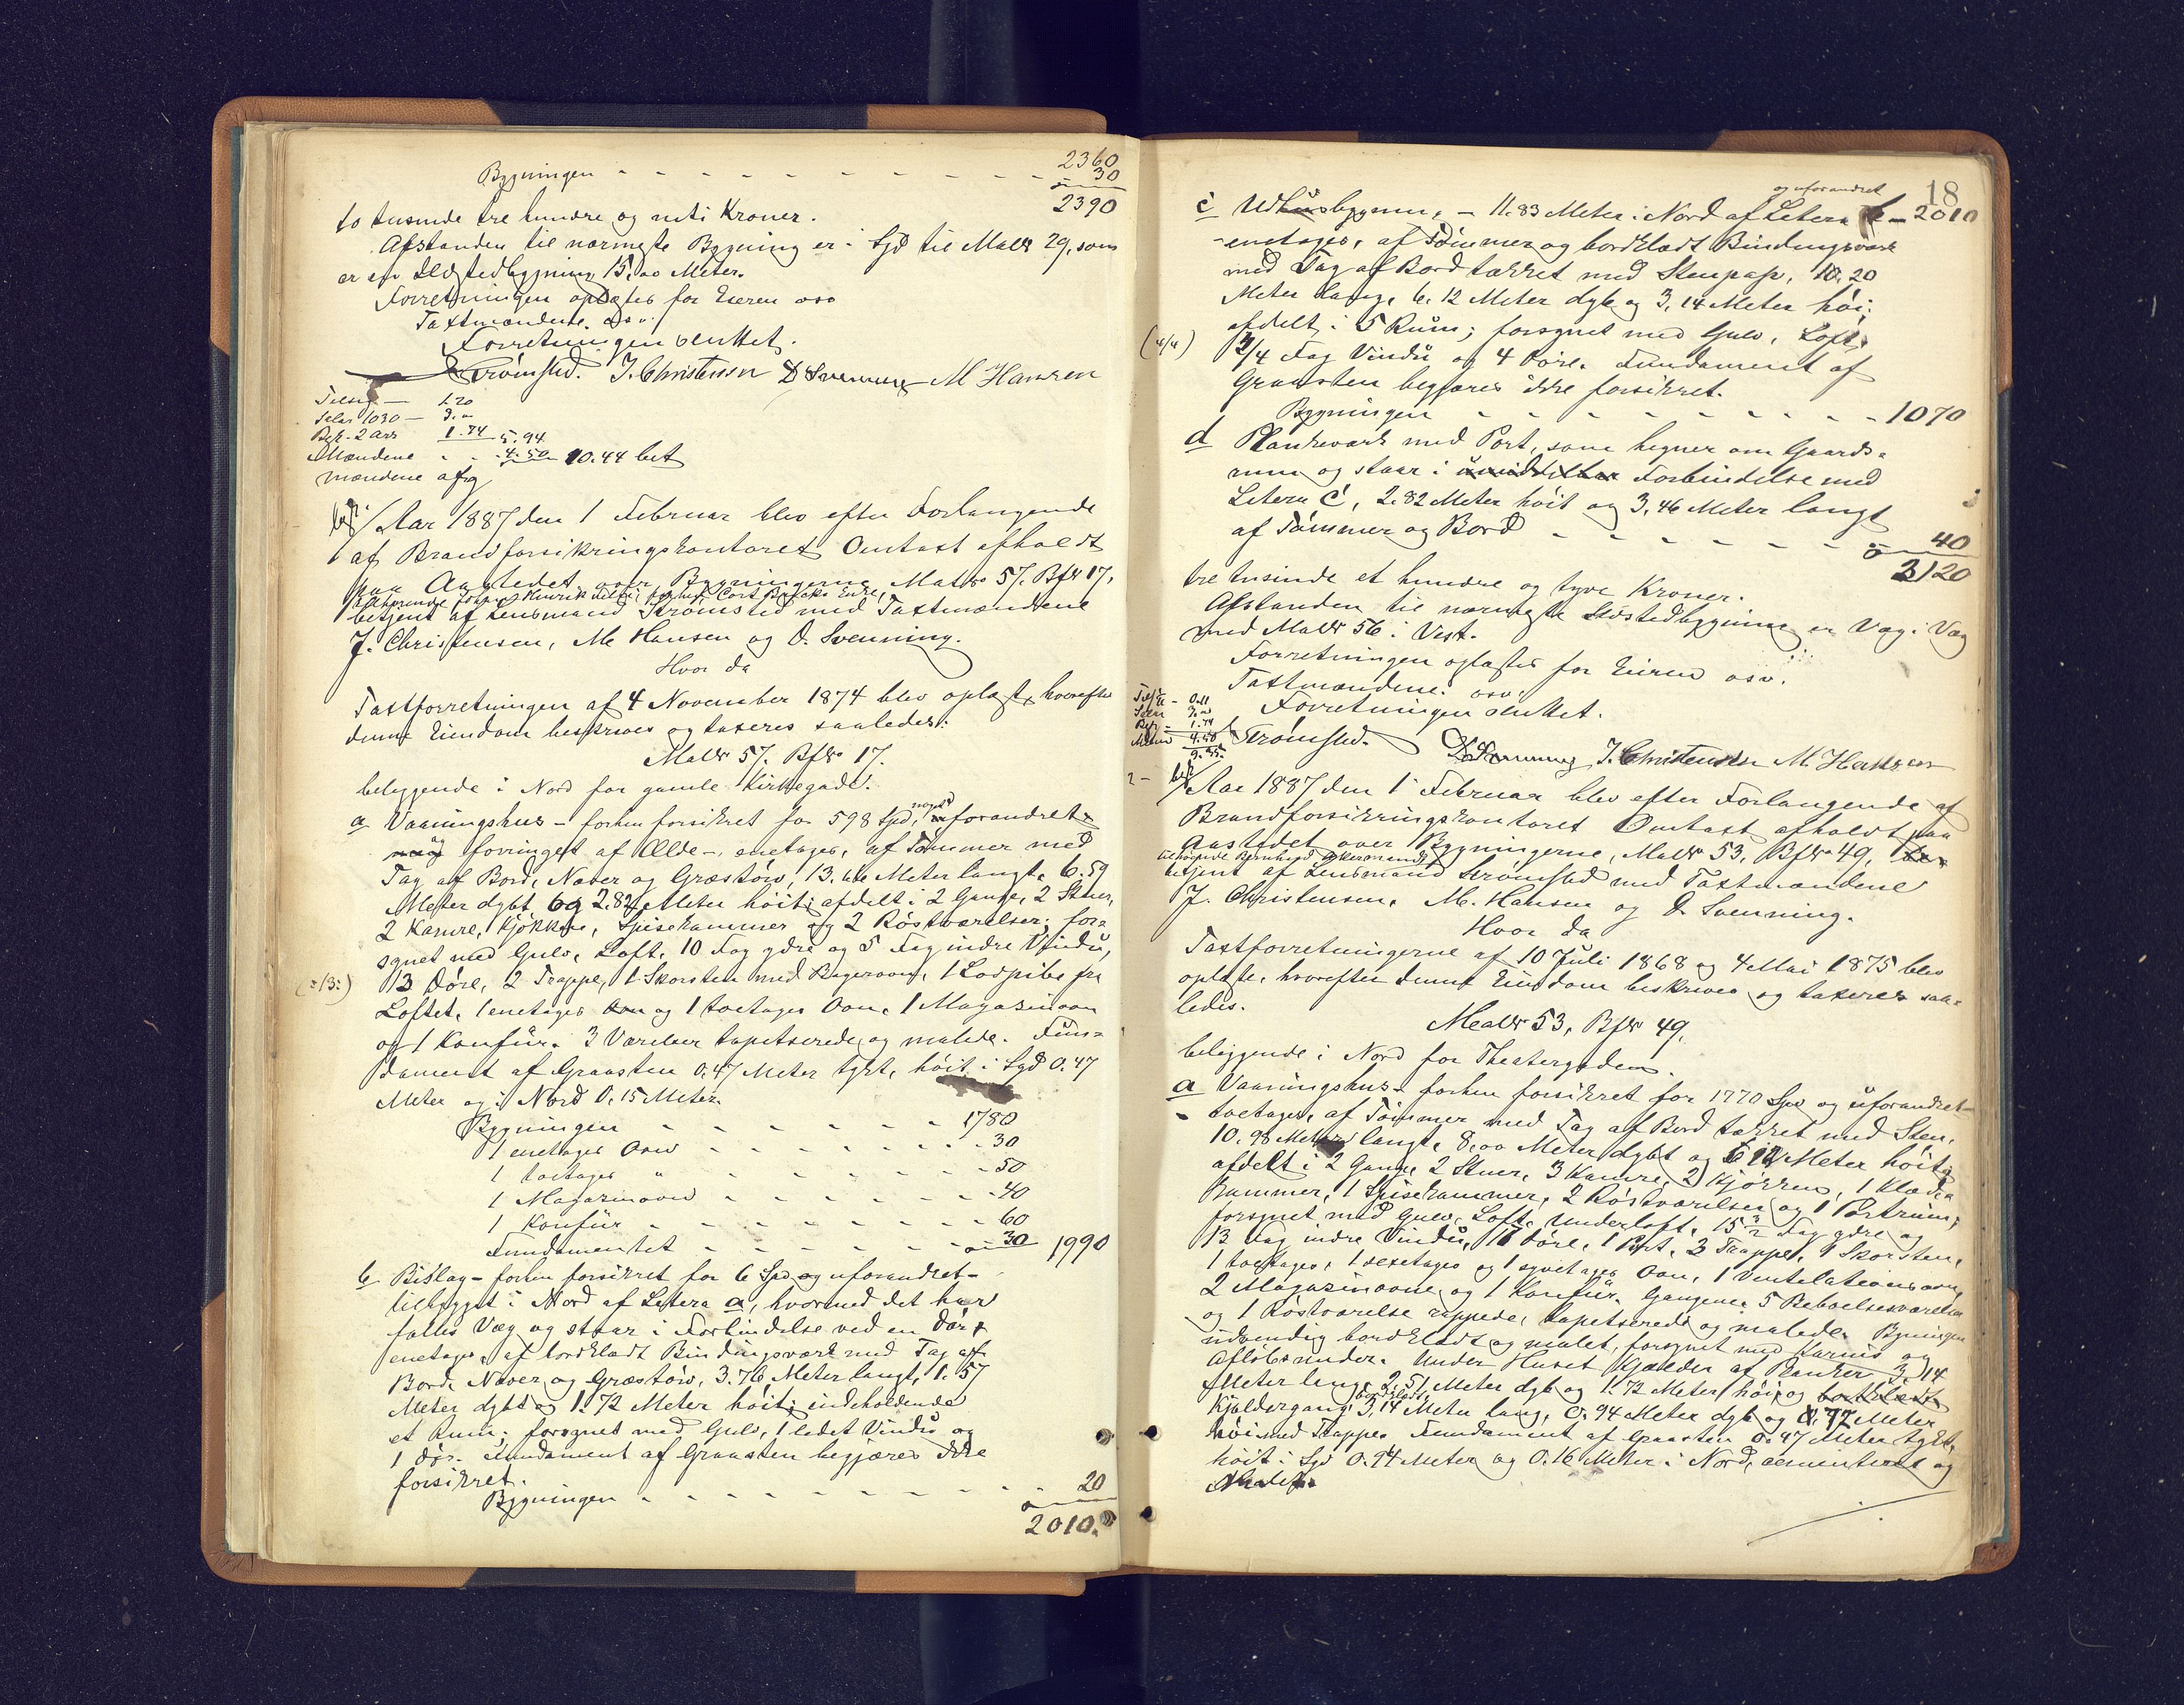 2360
Bygningen - - - - - - - - - - - 30
2390
to tusinde tre hundre og nitti Kroner.
Afstanden til nærmeste Bygning er i Syd til Matr 29, som
er en Ildstedbygning 15.00 Meter.
Forretningen oplæstes for Eieren osv
Taxtmændene osv.
Forretningen sluttet.
Strömsted. J. Christensen D Svenning M Hansen
Tilsig — 1.20
1030 — 3. "
Bef. 2 1.74 5.94
Mændene - - 4.50 10.44 bet
mændene afg
Aar 1887 den 1 Februar blev efter Forlangende
af Brandforsikringskontoret Omtaxt afholdt
paa Aastedet over Bygningerne Matr 57. Bfr 17,
tilhørende Henrik
betjent af Lensmand Strömsted med Taxtmændene
J. Christensen, M. Hansen og D. Svenning.
Hvor da
Taxtforretningen af 4 November 1874 blev oplæst, hvorefter
denne Eiendom beskrives og taxeres saaledes:
Matr 57. Bfr 17.
beliggende i Nord for gamle Kirkegade.
a Vaaningshus - forhen forsikret for 598 Spd, noget forandret
og forringet af Ælde -, enetages, af Tømmer med
Tag af Bord, Næver og Græstørv, 13.66 Meter langt, 6.59
Meter dybt og 2.82 Meter höit; afdelt i 2 Gange, 2 Stuer,
2 Kamre, 1 Kjøkken, Spisekammer og 2 Röstværelser; for-
synet med Gulv, Loft, 10 Fag ydre og 5 Fag indre Vindu,
(=13:) 13 Döre, 2 Trappe, 1 Skorsten med Bagerovn, 1 Lodpibe fra
Loftet, 1 enetages Ovn og 1 toetages Ovn, 1 Magasinovn
og 1 Komfür. 3 Værelser tapetserede og malede. Fun-
dament af Graasten 0.47 Meter tykt, höit i Syd 0.47
Meter og i Nord 0.15 Meter.
Bygningen - - - - - - - 1780
1 enetages Ovn - - - - - - - 30
1 toetages " - - - - - - - 50
1 Magasinovn - - - - - - - 40
1 Komfür - - - - - - - 60
Fundamentet - - - - - - - 30 1990
b. Bislag - forhen forsikret for 6 Spd og uforandret -
tilbygget i Nord af Letera a, hvormed det har
fælles Væg og staar i Forbindelse ved en Dör,
enetages, af bordklædt Bindingsværk med Tag af
Bord, Næver og Græstørv, 3.76 Meter langt, 1.57
Meter dybt og 1.72 Meter höit; indeholdende
et Rum; forsynet med Gulv, 1 ledet Vindu og
1 Dör. Fundament af Graasten begjæres ikke
forsikret.
Bygningen - - - - - - - - - 20
2010.
18
og uforandret
c Udhusbygnin, - 11.83 Meter i Nord af Letera b - 2010
- enetages, af Tømmer og bordklædt Bindingsværk
med Tag af Bord tækket med Stenpap, 10.20
Meter lang, 6.12 Meter dyb og 3.14 Meter höi;
afdelt i 5 Rum; forsynet med Gulv, Loft,
(4/4) 3/4 Fag Vindu og 4 Döre. Fundament af
Graasten begjæres ikke forsikret.
Bygningen - - - - - - - - - 1070
d Plankeværk med Port, som hegner om Gaards-
rum og staar i umiddelbar Forbindelse med
Letera C, 2.82 Meter höit og 3.46 Meter langt
af Tømmer og Bord - - - - - - - 40
3120
tre tusinde et hundre og tyve Kroner.
Afstanden til nærmeste Ildstedbygning er Væg i Væg
med Matr 56 i Vest.
Forretningen oplæstes for Eieren osv.
Taxtmændene osv.
Forretningen sluttet.
0.11
3. "
Bef - 1.74
Mænd 4.50
9.35.
Strömsted. D Svenning J. Christensen M. Hansen
Aar 1887 den 1 Februar blev efter Forlangende af
Brandforsikringskontoret Omtaxt afholdt paa
Aastedet over Bygningerne, Matr 53, Bfr 49,
tilhørende Bernhard Akermand
betjent af Lensmand Strömsted med Taxtmændene
J. Christensen, M. Hansen og D. Svenning.
Hvor da
Taxtforretningerne af 10 Juli 1868 og 4 Mai 1875 blev
oplæste, hvorefter denne Eiendom beskrives og taxeres saa-
ledes.
Matr 53, Bfr 49,
beliggende i Nord for Theatergaden.
a Vaaningshus - forhen forsikret for 1770 Spd og uforandret -
- toetages, af Tømmer med Tag af Bord tækket med Sten,
10.98 Meter langt, 8.00 Meter dybt og 6.12 Meter höit;
afdelt i 2 Gange, 2 Stuer, 3 Kamre, 2 Kjøkken, 1 Klæde-
kammer, 1 Spisekammer, 2 Röstværelser og 1 Portrum;
forsynet med Gulv, Loft, Underloft, 15 3/2 Fag ydre og
13 Fag indre Vindu, 17 Döre, 1 Port, 3 Trapper, 1 Skorsten,
1 toetages, 1 sexetages og 1 syvetages Ovn, 1 Ventilationsovn,
2 Magasinovne og 1 Komfür. Gangene, 5 Beboelsesværelser
og 1 Röstværelse rappede, tapetserede og malede. Bygningen
udvendig bordklædt og malet, forsynet med Karnis og
Aflöbsrender. Under Huset Kjælder af Planker 3.14
Meter lang, 2.51 Meter dyb og 1.72 Meter höi, og bordklædt
bordklædt
Kjældergang, 3.14 Meter lang, 0.94 Meter dyb og 0.72 Meter
höi med Trappe. Fundament af Graasten 0.47 Meter tykt,
höit i Syd 0.94 Meter og 0.16 Meter i Nord, cementeret og
malet.